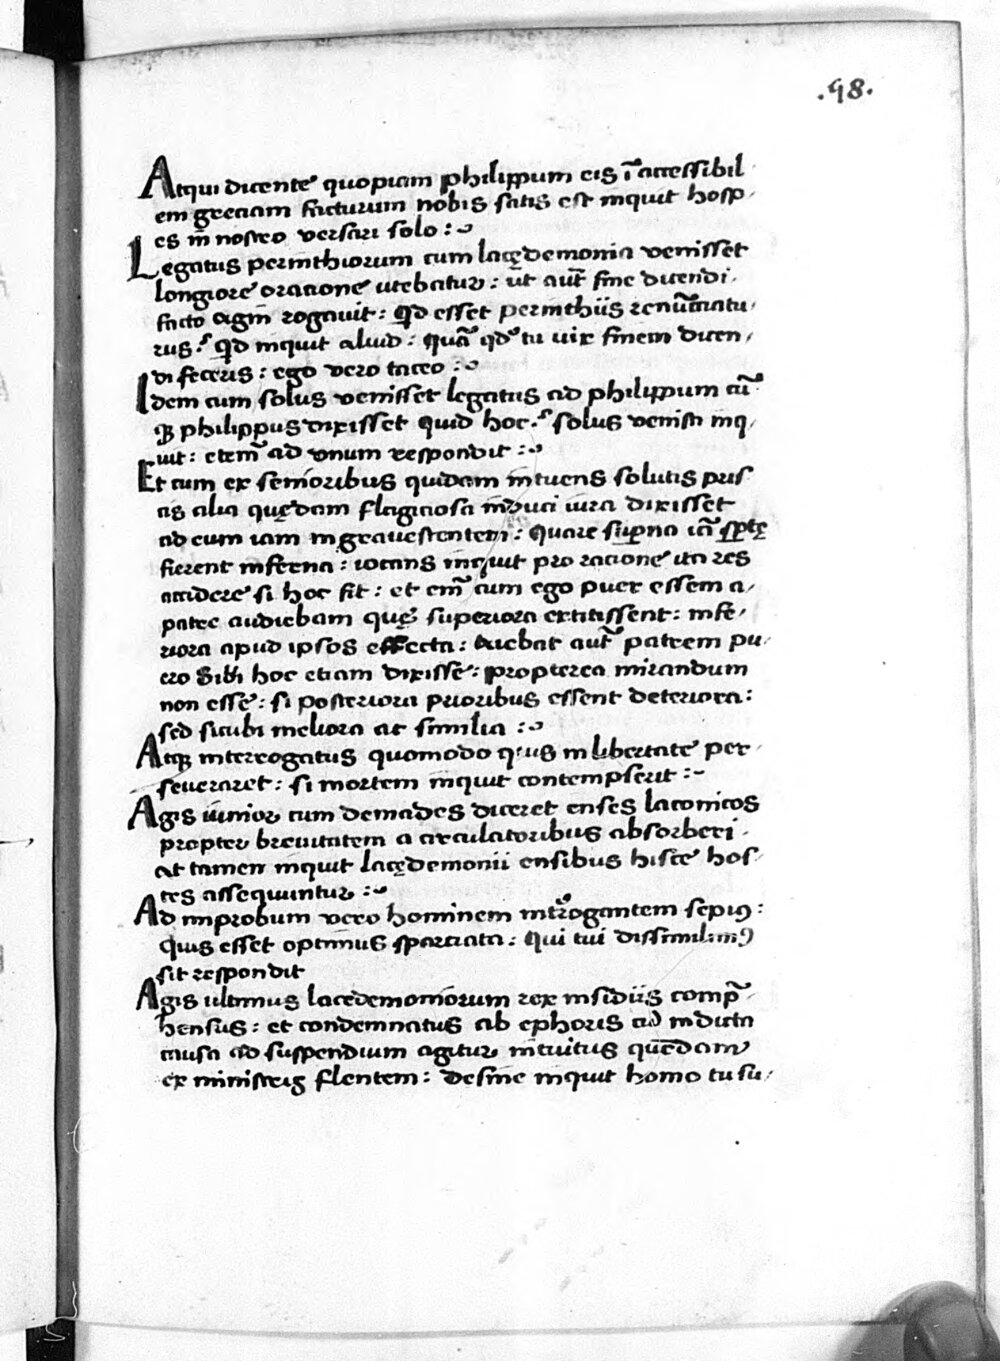 .98.
Atqui dicente quopiam philippum eis ī accessibil
em greciam facturum nobis satis est inquit hosp
es in̄ nostro versari solo :~
Legatus perinthiorum cum lacędemonia venisset
longiore oratione utebatur : ut aut̄ fine dicendi
facto agin̄ rogavit : Qd esset perinthiis renūciatu
rus ? Qd inquit aliud : Quā qd tu vix finem dicen
di feceris : ego vero taceo :~
Idem cum solus venisset legatus ad philippum cū
qȝ philippus dixisset quid hoc ? solus venisti inq
uit : eteni̅ ad vnum respondit :~
Et cum ex senioribus quidam intuens solutis pris
cis alia quędam flagiciosa induci iura dixisset
ad eum iam ingravescentem : Quare supna iā sptę
fierent inferna : iocans inquit pro ratione ita res
accidere si hoc fit : et eni̅ cum ego puer essem a
patre audiebam quę superiora extitissent : infe
riora apud ipsos effecta : aiebat aut̄ patrem pu
ero sibi hoc etiam dixisse : propterea mirandum
non esse : si posteriora prioribus essent deteriora :
sed sicubi meliora ac similia :~
Atqȝ interrogatus quomodo quis in libertate per
severaret : si mortem inquit contempserit :~
Agis iunior cum demades diceret enses laconicos
propter brevitatem a circulatoribus absorberi .
at tamen inquit lacędemonii ensibus hisce hos
tes assequuntur :~
Ad improbum vero hominem int̄rogantem sepiꝰ :
quis esset optimus sparciata : Qui tui dissimilimꝰ
sit respondit
Agis ultimus lacedemoniorum rex insidiis comp̄
hensus : et condemnatus ab ephoris cū indicta
causa ad suspendium agitur intuitus quēdam
ex ministris flentem : desine inquit homo tu su